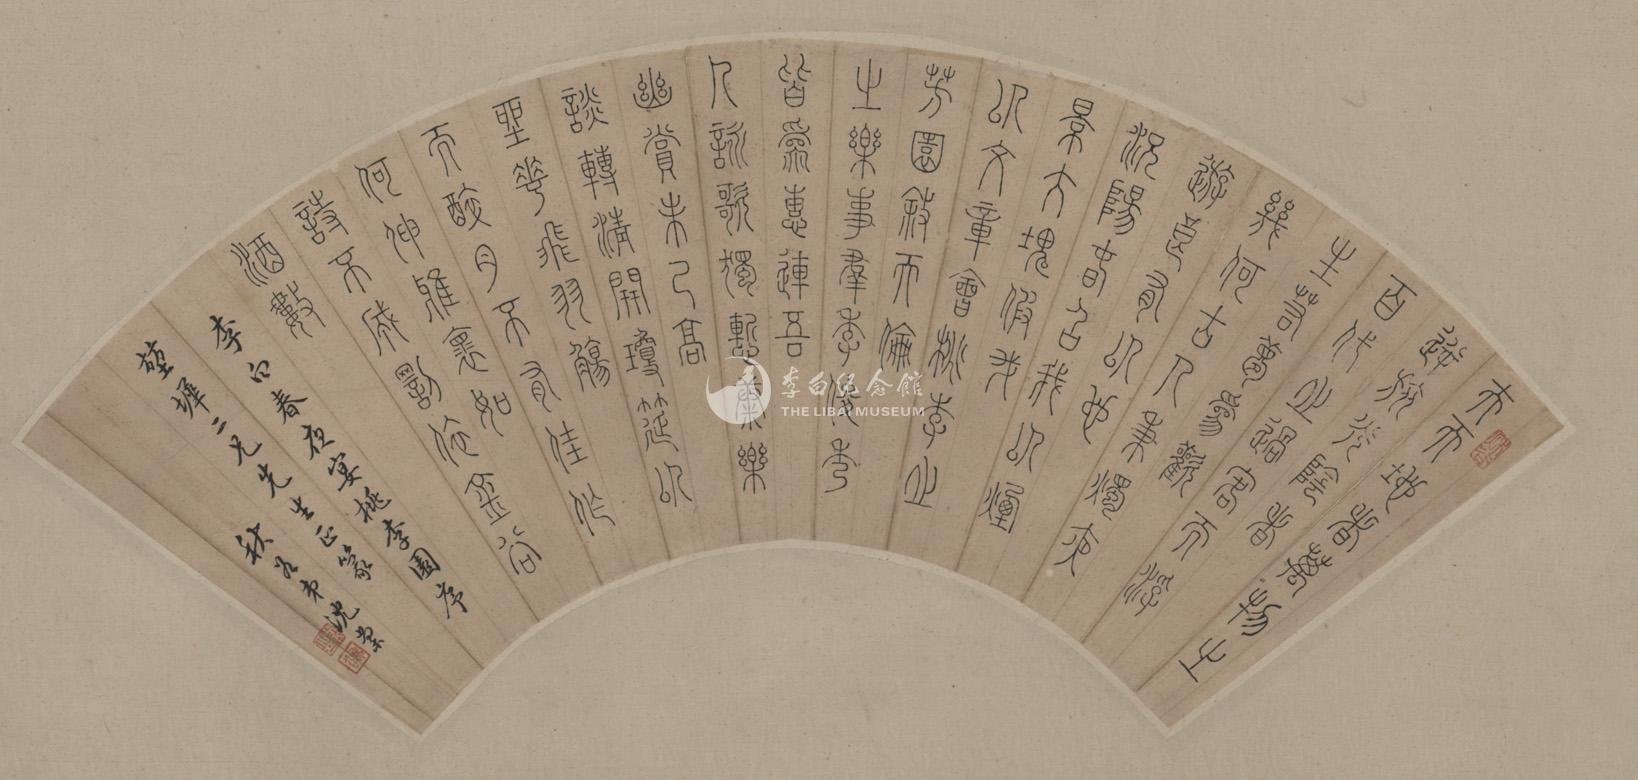 夫天地者萬物之
逆旅光陰者
百代之過客而浮
生若夢為歡
幾何古人秉燭夜
遊良有以也
況陽春召我以煙
景大塊假我
以文章會桃李之
芳園敘天倫
之樂事羣季俊秀
皆為惠連吾
人詠歌獨慙康樂
幽賞未已高
談轉清開瓊筵以
坐花飛羽觴
而醉月不有佳作
何伸雅懷如
詩不成罰依金谷
酒數
李白春夜宴桃李園序
墀二兄先生正篆
秋弟沈
李白紀念館
THE LIBAI MUSEUM